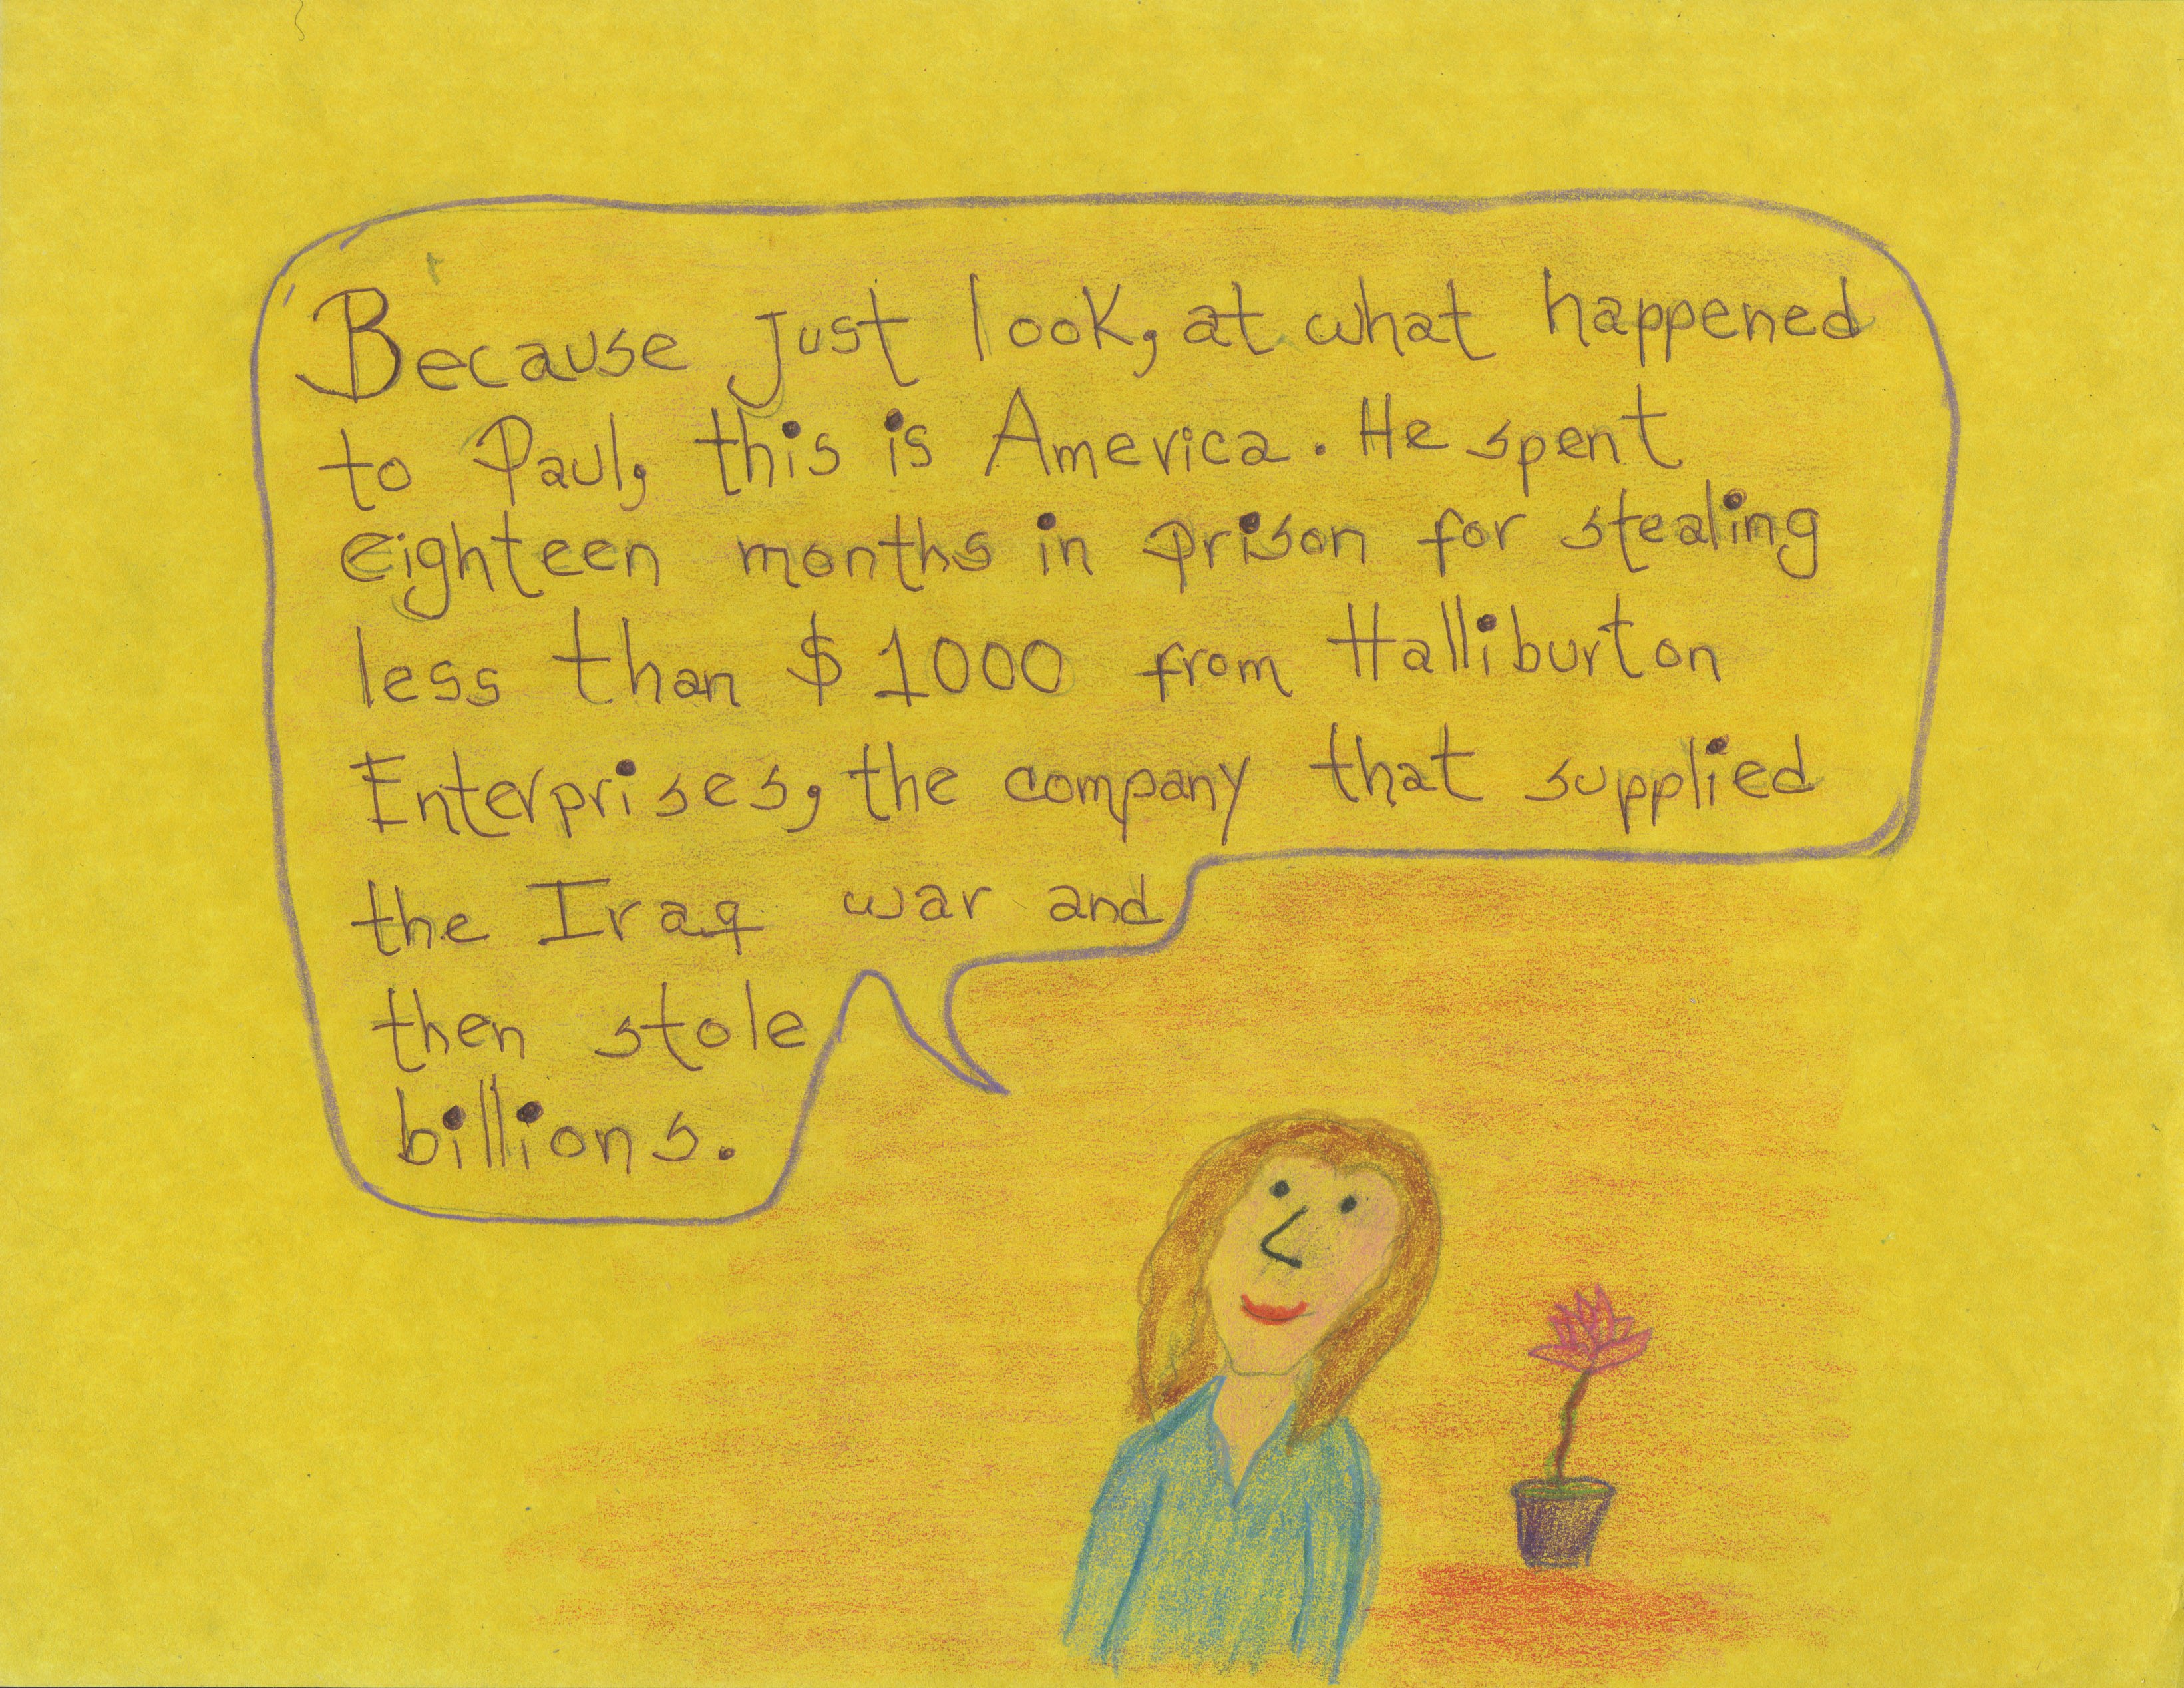 Because just look, at what happened
to Paul, this is America. He spent
eighteen months in prison for stealing
less than $1000 from Halliburton
Enterprises, the company that supplied
the Iraq war and
then stole
billions.